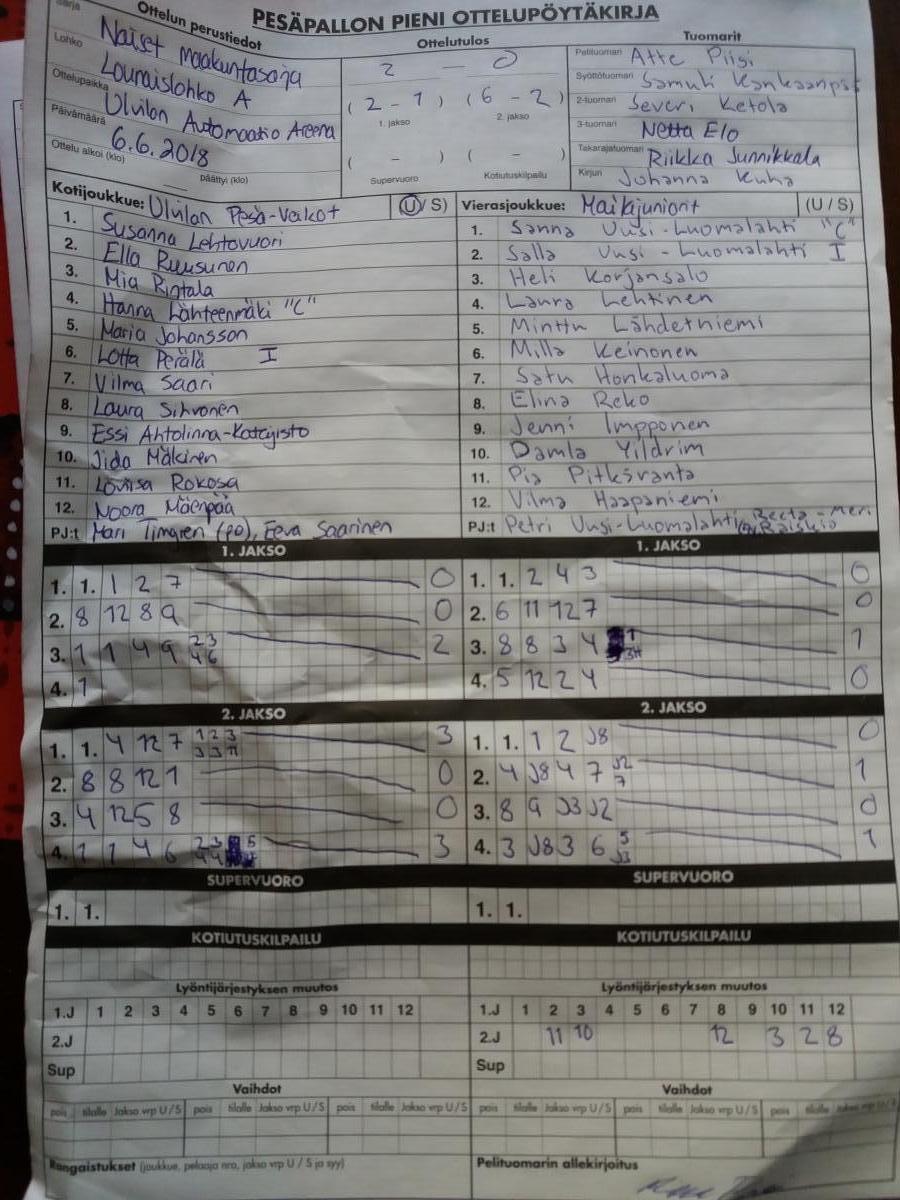 PESÄPALLON PIENI OTTELUPÖYTÄKIRJA
Sarja
Ottelun perustiedot
Naiset Maakuntasarja
Lohko
Lounaislohko A
Ottelupaikka
Ulvilan Automaatio Areena
Päivämäärä
6.6.2018
Ottelu alkoi (klo)
päättyi (klo)
Ottelutulos
2 — 0
(2 - 1) (6 - 2)
1. jakso 2. jakso
( - ) ( - )
Supervuoro Kotiutuskilpailu
Tuomarit
Pelituomari Atte Piisi
Syöttötuomari Samuli Kankaanpää
2-tuomari Severi Ketola
3-tuomari Netta Elo
Takarajatuomari Riikka Junnikkala
Kirjuri Johanna Kuha
Kotijoukkue: Ulvilan Pesä-Veikot (U/ S)
1. Susanna Lehtovuori
2. Ella Ruusunen
3. Mia Rintala
4. Hanna Lähteenmäki "C"
5. Maria Johansson
6. Lotta Perälä I
7. Vilma Saari
8. Laura Sihvonen
9. Essi Ahtolinna-
10. Jida Mäkinen
11. Loviisa Rokosa
12. Noora Mäenpää
PJ:t Mari Timgren (PO), Eeva Saarinen
Vierasjoukkue: Mailajuniorit (U / S)
1. Sanna Uusi-Luomalahti "C"
2. Salla Uusi-Luomalahti I
3. Heli Korjansalo
4. Laura Lehtinen
5. Minttu Lähdetniemi
6. Milla Keinonen
7. Satu Honkaluoma
8. Elina Reko
9. Jenni Impponen
10. Damla Yildrim
11. Pia Pitkäranta
12. Vilma Haapaniemi
PJ:t Petri Uusi-Luomalahti, Reeta-Meri Raiskio
1. JAKSO
1. 1. 1 2 7 0
2. 8 12 8 9 0
3. 1 1 4 9 2 3 4 6 2
4. 1
1. JAKSO
1. 1. 2 4 3 0
2. 6 11 12 7 0
3. 8 8 3 4 1 1
4. 5 12 2 4 0
2. JAKSO
1. 1. 4 12 7 1 2 3 3 3 11 3
2. 8 8 12 1 0
3. 4 12 5 8 0
4. 1 1 4 6 2 3 4 4 5 3
2. JAKSO
1. 1. 1 2 J8 0
2. 4 J8 4 7 J2 7 1
3. 8 9 J3 J2 0
4. 3 J8 3 6 5 J3 1
SUPERVUORO
1. 1.
SUPERVUORO
1. 1.
KOTIUTUSKILPAILU
KOTIUTUSKILPAILU
Lyöntijärjestyksen muutos
1.J 1 2 3 4 5 6 7 8 9 10 11 12
2.J
Sup
Lyöntijärjestyksen muutos
1.J 1 2 3 4 5 6 7 8 9 10 11 12
2.J 11 10 12 3 2 8
Sup
Vaihdot
pois tilalle Jakso vrp U / S pois tilalle Jakso vrp U / S pois tilalle Jakso vrp U / S
Vaihdot
pois tilalle Jakso vrp U / S pois tilalle Jakso vrp U / S pois tilalle Jakso vrp U / S
Rangaistukset (joukkue, pelaaja nro, jakso vrp U / S ja syy)
Pelituomarin allekirjoitus